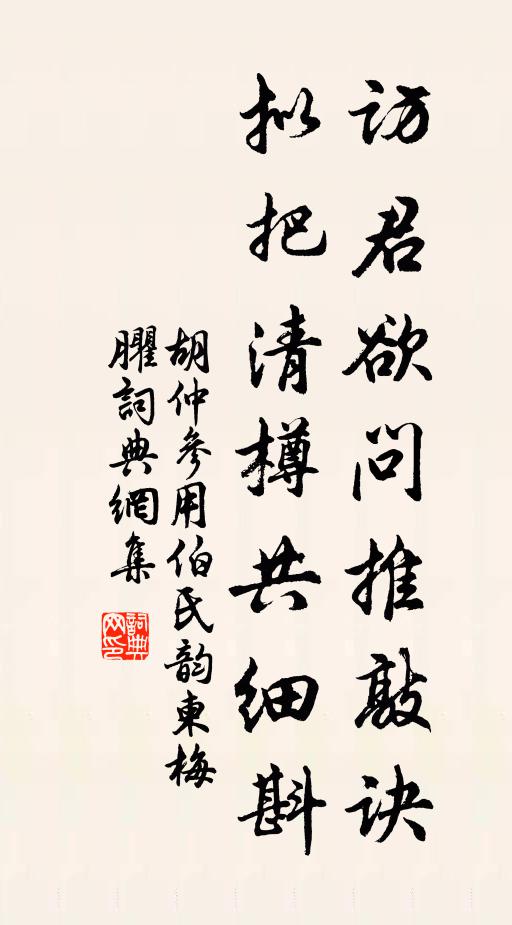 访君欲问推敲诀
拟把清樽共细斟
胡仲参用伯氏韵东梅
臞詞典網集
詞典网印